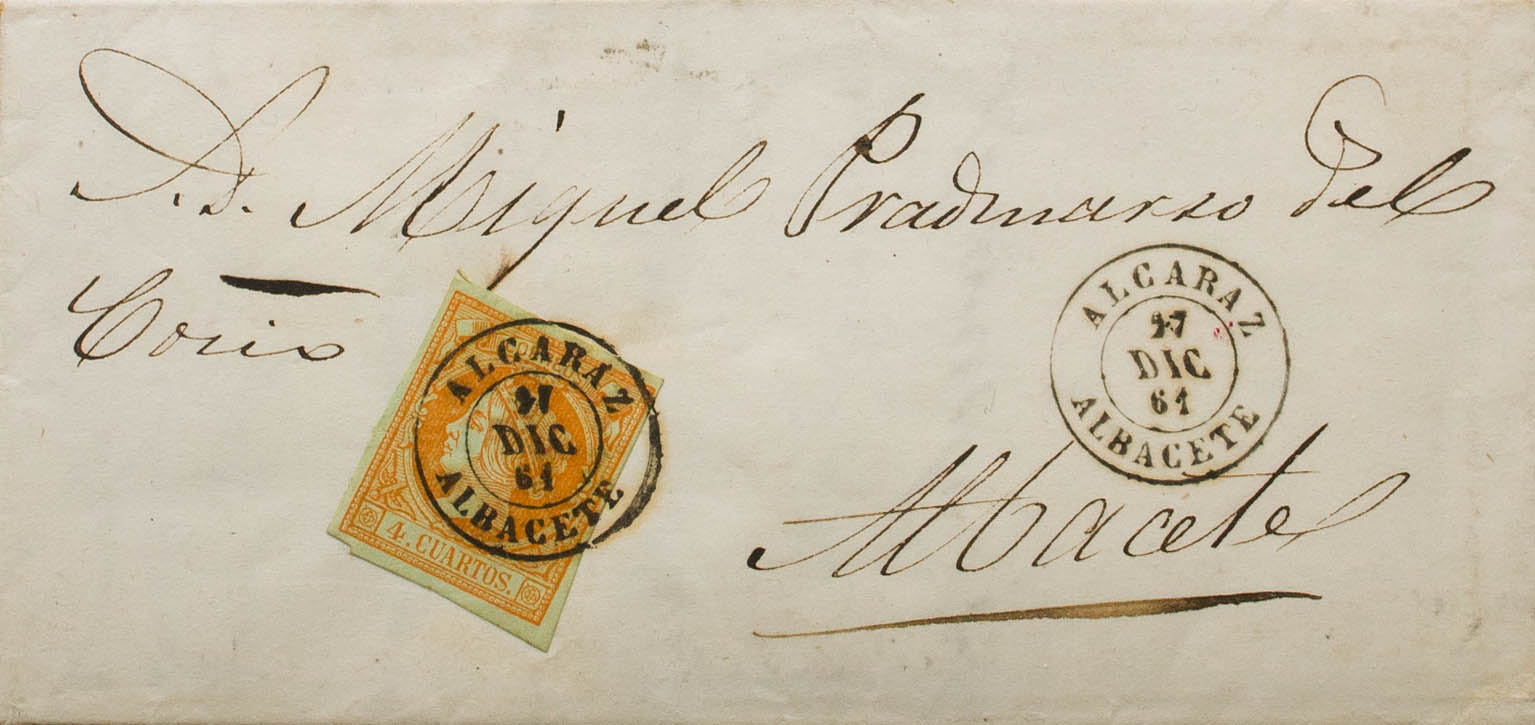 S. D. Miguel Pradmarzo del
Corio
Albacete
ALCARAZ
27
DIC
61
ALBACETE
ALCARAZ
27
DIC
61
ALBACETE
4. CUARTOS.